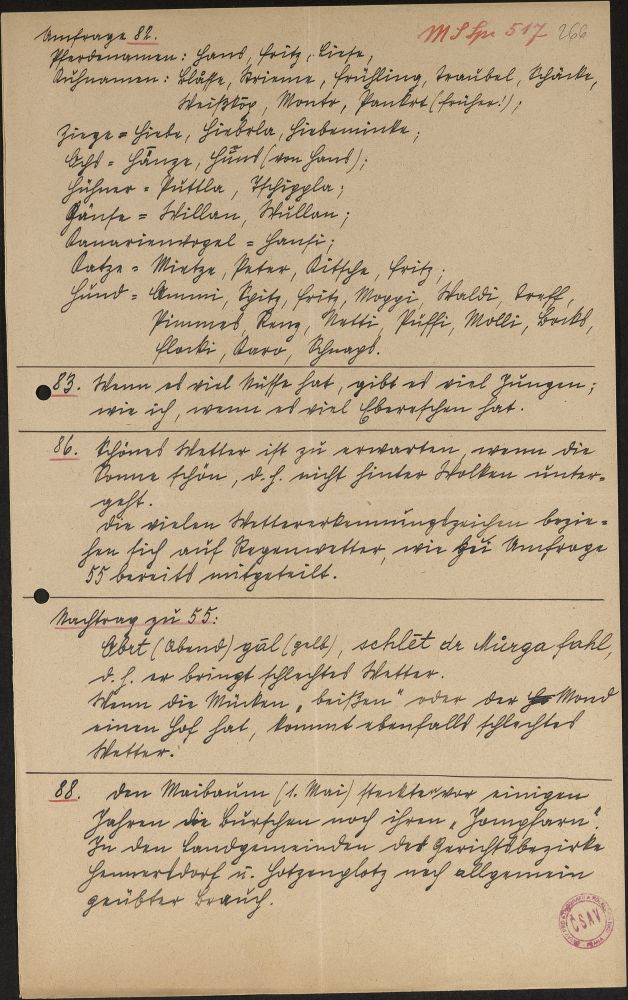 Umfrage 82.
MS Spr 517 266
Pferdenamen: Hans, Fritz, Liese,
Kuhnamen: Blässe, Brieme, Frühling, Traubel, Schäcke,
Weißkop, Montr, Pankrt (früher!),
Ziege = Hiede, Hiedrla, Hiedeminke;
Ochs = Hänze, Huns (von Hans);
Hühner = Puttla, Tschippla;
Gänse = Willan, Wullan;
Kanarienvogel = Hansi;
Katze = Mietze, Peter, Kitsche, Fritz;
Hund = Ammi, Spitz, Fritz, Moppi, Waldi, Treff,
Pimmes, Renz, Netti, Puffi, Molli, Bocks,
Flocki, Karo, Schnaps.
83. Wenn es viel Nüsse hat, gibt es viel Jungen;
wie ich, wenn es viel Ebereschen hat.
86. Schönes Wetter ist zu erwarten, wenn die
Sonne schön, d.h. nicht hinter Wolken unter-
geht.
Die vielen Wettererkennungszeichen bezie-
hen sich auf Regenwetter, wie zu Umfrage
55 bereits mitgeteilt.
Nachtrag zu 55:
Obrt (Abend) gāl (gelb), schlēt dr Murga fahl,
d.h. er bringt schlechtes Wetter.
Wenn die Mücken „beißen" oder der Mond
einen Hof hat, kommt ebenfalls schlechtes
Wetter.
88. Den Maibaum (1. Mai) steckten vor einigen
Jahren die Burschen noch ihren „Jompfarn".
In den Landgemeinden des Gerichtsbezirke
Hennersdorf u. Hotzenplotz noch allgemein
geübter Brauch.
ČSAV